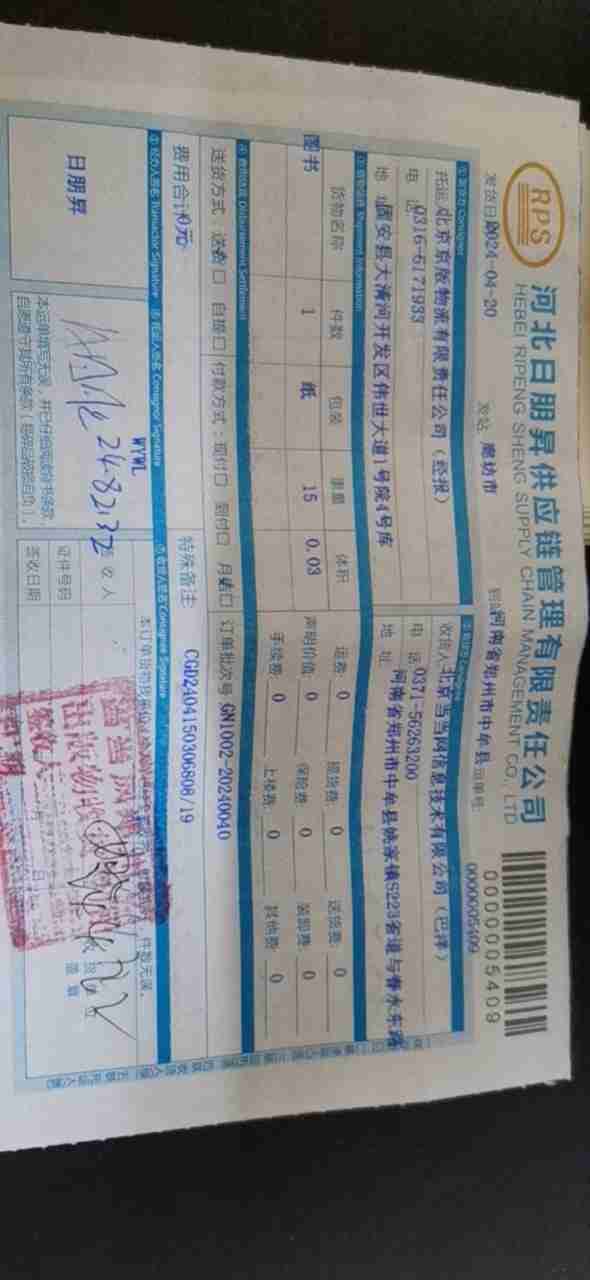 RPS
河北日朋昇供应链管理有限责任公司
HEBEI RIPENG SHENG SUPPLY CHAIN MANAGEMENT CO., LTD
0000005409
发货日期2024-04-20 发站 廊坊市 到站 河南省郑州市中牟县 运单号: 0000005409
① 托运方 Consignor
托运 北京京版物流有限责任公司（经报）
电 话 0316-6171933
地 址 固安县大清河开发区伟世大道1号院4号库
收货人 北京当当网信息技术有限公司（巴泽）
电 话 0371-56263200
地 址 河南省郑州市中牟县姚家镇S223省道与春水东路
Shipment Information
货物名称 件数 包装 重量 体积
图书 1 纸 15 0.03
运费: 0 提货费: 0 送货费: 0
声明价值: 0 保险费: 0 装卸费: 0
手续费: 0 上楼费: 0 其他费: 0
Disbursement Settlement
送货方式: 送货口 自提口 付款方式: 现付口 到付口 月结口 订单批次号 GN1002-20240040
费用合计0元 特殊备注 CGD2404150306808/19
Transactor Signature
Consignor Signature
Consignee Signature
日朋昇
WYWL
本运单填写无误，并已仔细阅读背书条款，
自愿遵守所有条款
收人
证件号码
签收日期
件数无误。